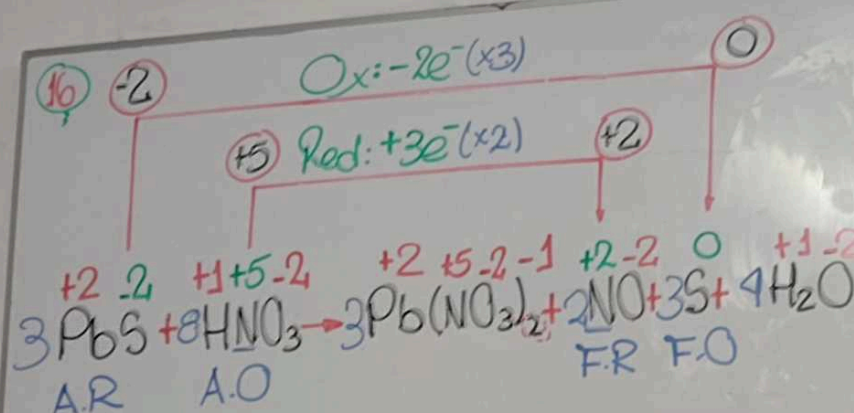 16 -2 Ox:-2e⁻(x3) 0
+5 Red: +3e⁻(x2) +2
+2 -2 +1+5-2 +2 +5-2-1 +2-2 0 +1-2
3PbS+8HNO₃→3Pb(NO₃)₂+2NO+3S+4H₂O
A.R A.O F.R F.O